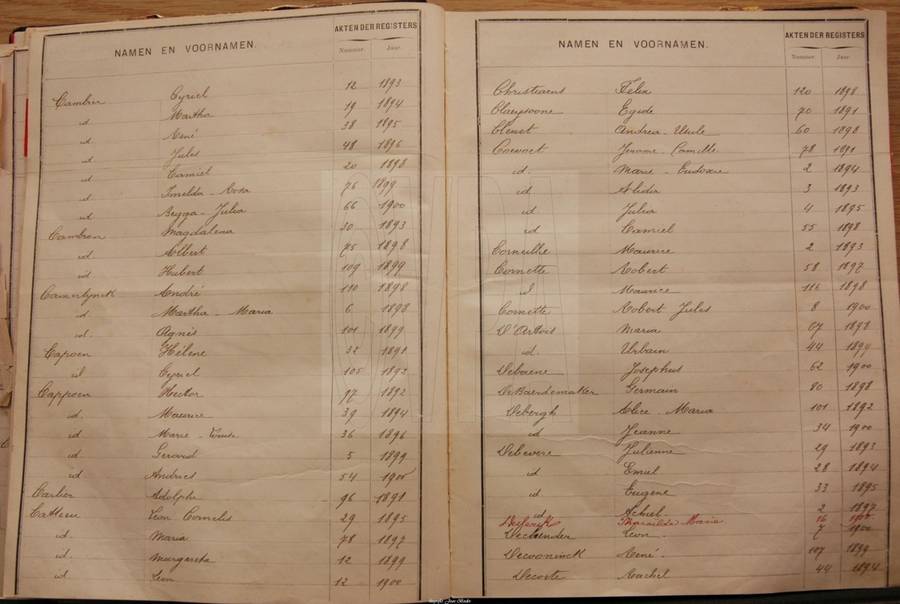 NAMEN EN VOORNAMEN. AKTEN DER REGISTERS
Nummer. Jaar.
Cambier Cyriel 12 1893
id Martha 19 1894
id René 38 1895
id Jules 48 1896
id Camiel 20 1898
id Imelda - Rosa 76 1899
id Begga - Julia 66 1900
Cambron Magdalena 30 1893
id Albert 75 1898
id Hubert 109 1899
Camerlynck André 110 1898
id. Martha - Maria 6 1898
id. Agnes 101 1899
Capoen Hélène 32 1891
id Cyriel 105 1892
Cappoen Hector 97 1892
id. Maurice 39 1894
id Marie - 36 1896
id Gerard 5 1899
id Andries 54 1900
Carlier Adolphe 96 1891
Catteau Leon Cornelis 29 1895
id. Maria 78 1897
id. Margareta 12 1899
id Leon 12 1900
NAMEN EN VOORNAMEN. AKTEN DER REGISTERS
Nummer. Jaar.
Christiaens Felix 120 1898
Claeysoone Egide 70 1891
Andrea - 60 1898
Coevoet Jerome - Camille 78 1891
id. Marie - 2 1894
id Alida 3 1893
id Julia 4 1895
id Camiel 55 1898
Corneillie Maurice 2 1893
Cornette Robert 58 1897
id Maurice 116 1898
Cornette Robert Jules 8 1900
D'Artois Maria 67 1898
id. Urbain 44 1899
Debaene Josephus 62 1900
DeBaerdemaeker Germain 80 1898
Debergh Alice - Maria 101 1892
id Jeanne 34 1900
Debevere Julienne 29 1893
id Emiel 28 1894
id Eugene 33 1895
id Achiel 2 1897
Maria 16 1900
Leon 7 1900
Deconninck René 107 1899
Decoste Rachel 44 1894